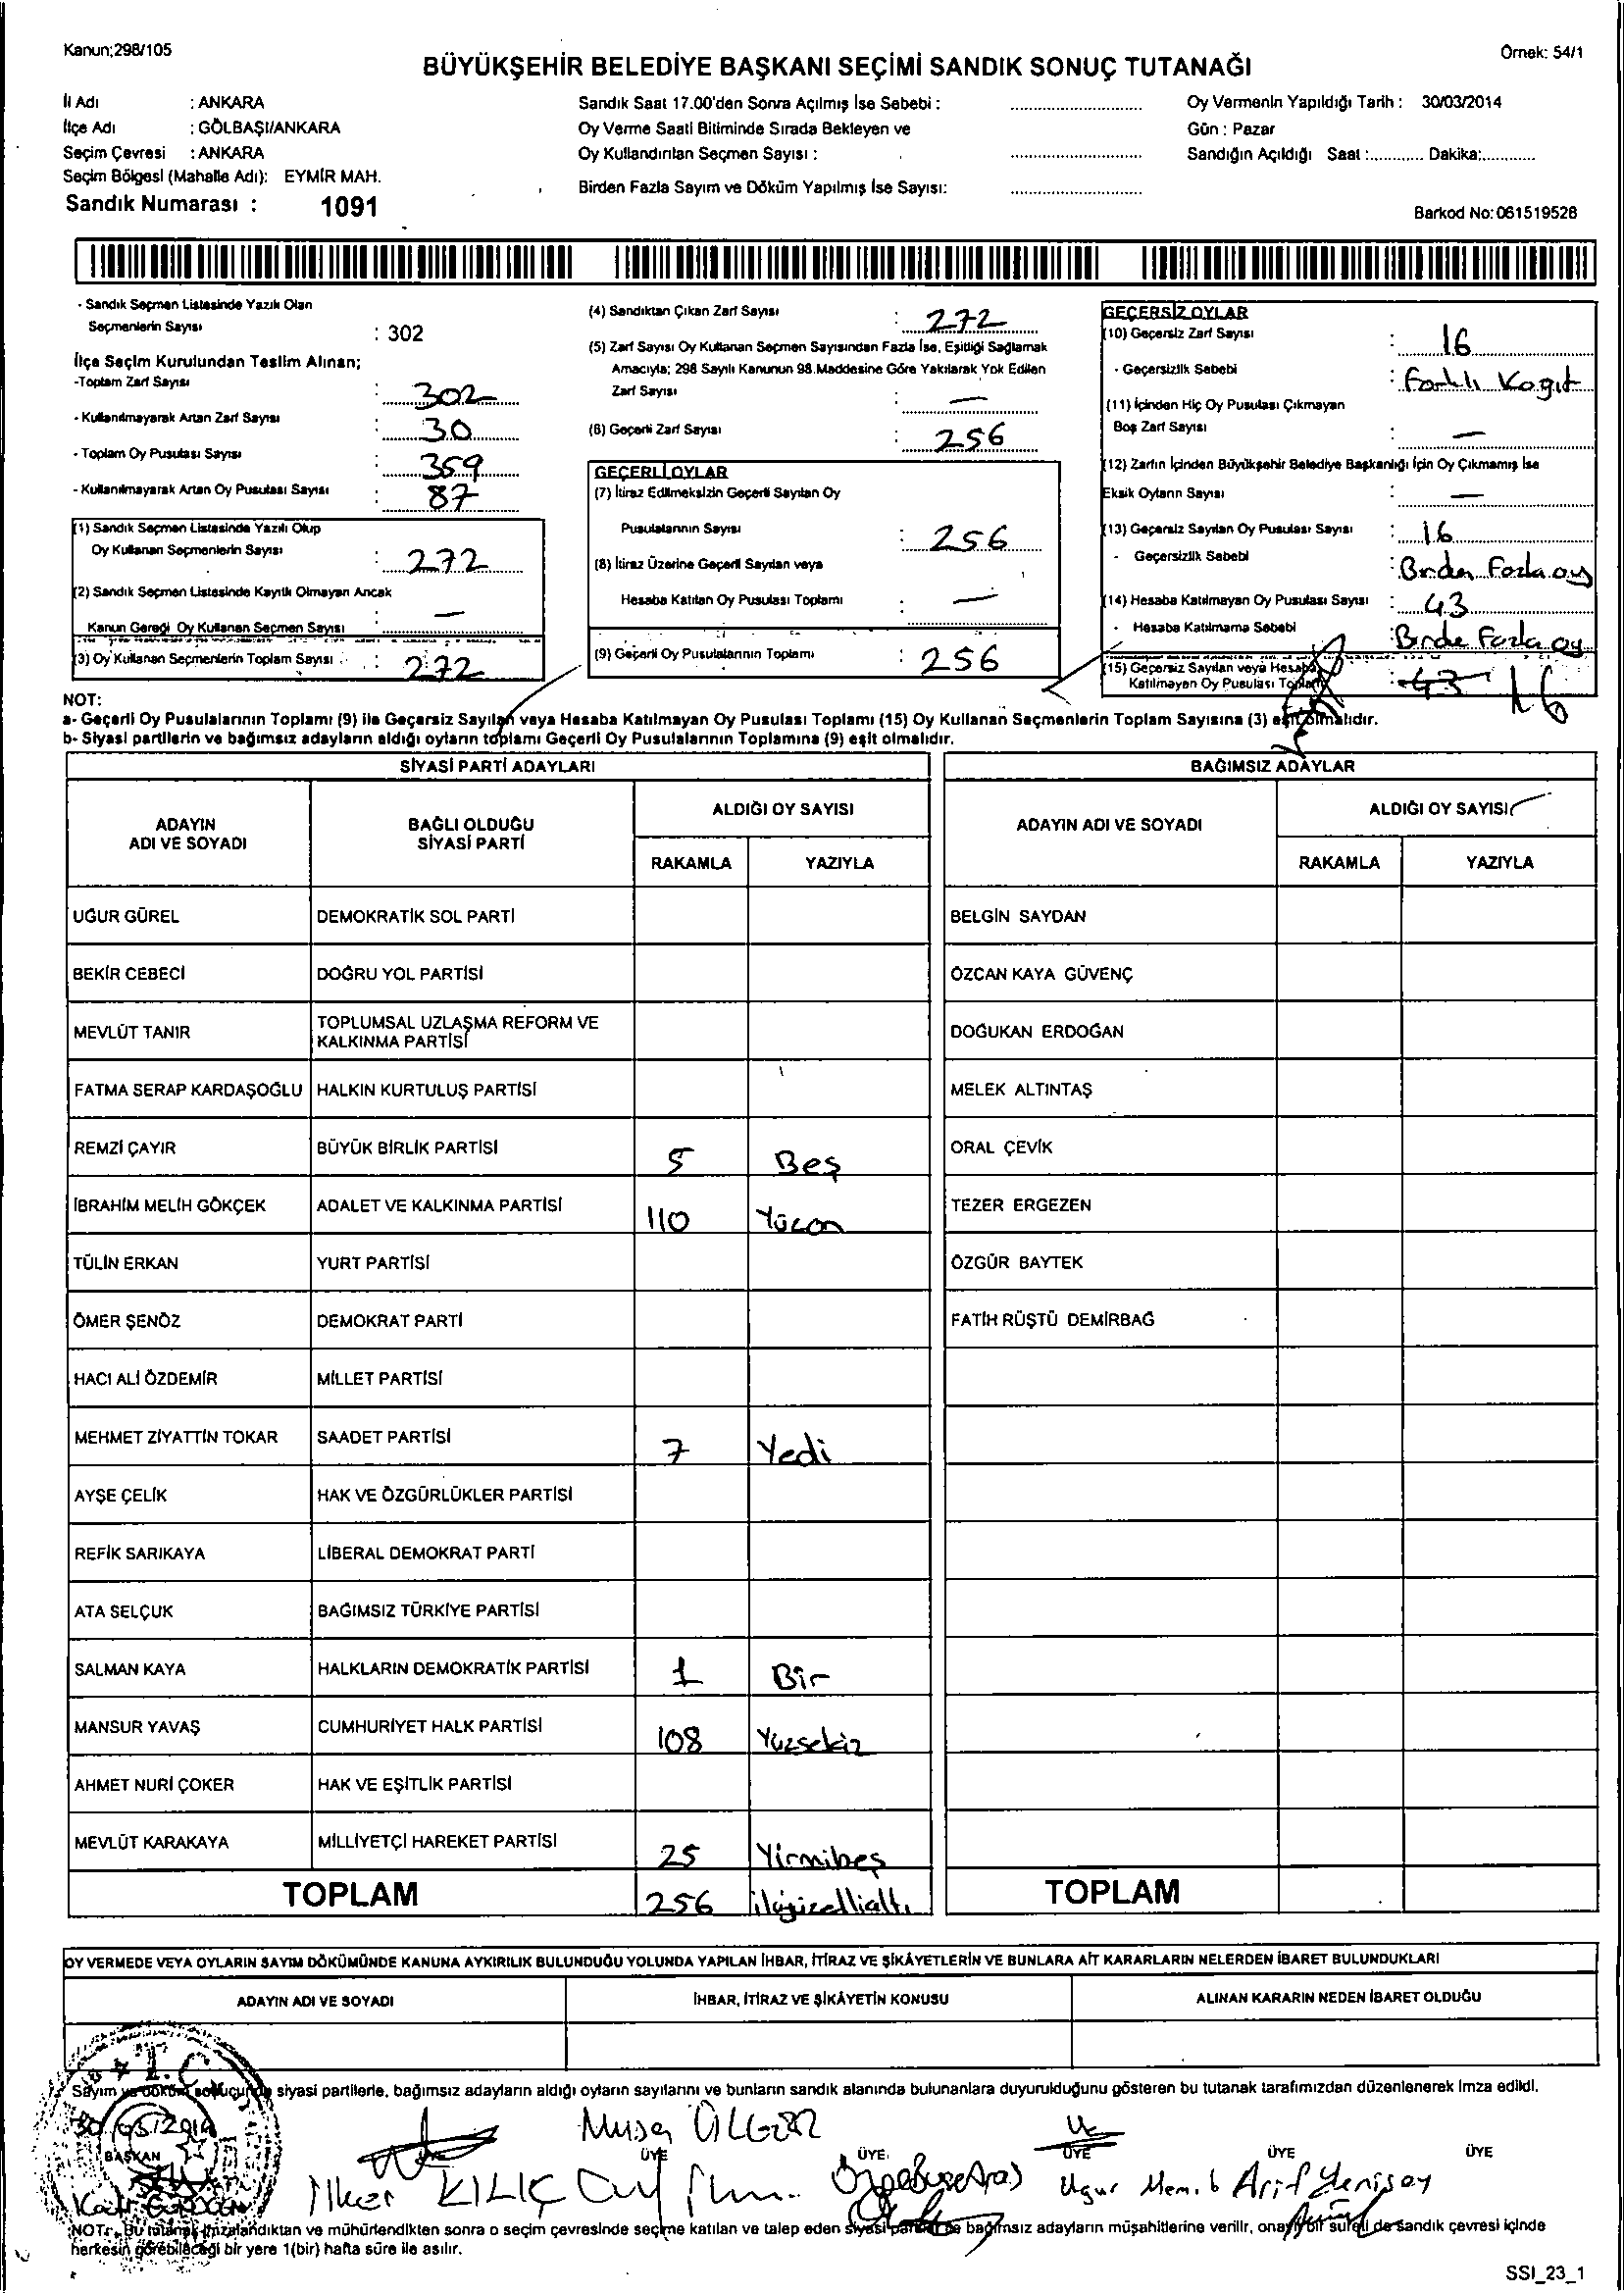 Kanun;298/105
Örnek: 54/1
BÜYÜKŞEHİR BELEDİYE BAŞKANI SEÇİMİ SANDIK SONUÇ TUTANAĞI
İl Adı : ANKARA
İlçe Adı : GÖLBAŞI/ANKARA
Seçim Çevresi : ANKARA
Seçim Bölgesi (Mahalle Adı): EYMİR MAH.
Sandık Numarası : 1091
Sandık Saat 17.00'den Sonra Açılmış İse Sebebi :
Oy Verme Saati Bitiminde Sırada Bekleyen ve
Oy Kullandırılan Seçmen Sayısı :
Birden Fazla Sayım ve Döküm Yapılmış İse Sayısı:
Oy Vermenin Yapıldığı Tarih : 30/03/2014
Gün : Pazar
Sandığın Açıldığı Saat :............ Dakika:............
Barkod No:061519528
- Sandık Seçmen Listesinde Yazılı Olan
Seçmenlerin Sayısı : 302
İlçe Seçim Kurulundan Teslim Alınan;
-Toplam Zarf Sayısı : 302
- Kullanılmayarak Artan Zarf Sayısı : 30
- Toplam Oy Pusulası Sayısı : 359
- Kullanılmayarak Artan Oy Pusulası Sayısı : 87
(1) Sandık Seçmen Listesinde Yazılı Olup
Oy Kullanan Seçmenlerin Sayısı : 272
(2) Sandık Seçmen Listesinde Kayıtlı Olmayan Ancak
Kanun Gereği Oy Kullanan Seçmen Sayısı : —
(3) Oy Kullanan Seçmenlerin Toplam Sayısı : 272
(4) Sandıktan Çıkan Zarf Sayısı : 272
(5) Zarf Sayısı Oy Kullanan Seçmen Sayısından Fazla İse, Eşitliği Sağlamak
Amacıyla; 298 Sayılı Kanunun 98.Maddesine Göre Yakılarak Yok Edilen
Zarf Sayısı : —
(6) Geçerli Zarf Sayısı : 256
GEÇERLİ OYLAR
(7) İtiraz Edilmeksizin Geçerli Sayılan Oy
Pusulalarının Sayısı : 256
(8) İtiraz Üzerine Geçerli Sayılan veya
Hesaba Katılan Oy Pusulası Toplamı : —
(9) Geçerli Oy Pusulalarının Toplamı : 256
GEÇERSİZ OYLAR
(10) Geçersiz Zarf Sayısı : 16
- Geçersizlik Sebebi : Farklı Kağıt
(11) İçinden Hiç Oy Pusulası Çıkmayan
Boş Zarf Sayısı : —
(12) Zarfın İçinden Büyükşehir Belediye Başkanlığı İçin Oy Çıkmamış İse
Eksik Oyların Sayısı : —
(13) Geçersiz Sayılan Oy Pusulası Sayısı : 16
- Geçersizlik Sebebi : Birden Fazla oy
(14) Hesaba Katılmayan Oy Pusulası Sayısı : 43
- Hesaba Katılmama Sebebi : Birde Fazla oy
(15) Geçersiz Sayılan veya Hesaba
Katılmayan Oy Pusulası Toplamı : 43 16
NOT:
a- Geçerli Oy Pusulalarının Toplamı (9) ile Geçersiz Sayılan veya Hesaba Katılmayan Oy Pusulası Toplamı (15) Oy Kullanan Seçmenlerin Toplam Sayısına (3) eşit olmalıdır.
b- Siyasi partilerin ve bağımsız adayların aldığı oyların toplamı Geçerli Oy Pusulalarının Toplamına (9) eşit olmalıdır.
SİYASİ PARTİ ADAYLARI
ADAYIN ADI VE SOYADI
BAĞLI OLDUĞU SİYASİ PARTİ
ALDIĞI OY SAYISI
RAKAMLA YAZIYLA
UĞUR GÜREL DEMOKRATİK SOL PARTİ
BEKİR CEBECİ DOĞRU YOL PARTİSİ
MEVLÜT TANIR TOPLUMSAL UZLAŞMA REFORM VE KALKINMA PARTİSİ
FATMA SERAP KARDAŞOĞLU HALKIN KURTULUŞ PARTİSİ
REMZİ ÇAYIR BÜYÜK BİRLİK PARTİSİ 5 Beş
İBRAHİM MELİH GÖKÇEK ADALET VE KALKINMA PARTİSİ 110 Yüzon
TÜLİN ERKAN YURT PARTİSİ
ÖMER ŞENÖZ DEMOKRAT PARTİ
HACI ALİ ÖZDEMİR MİLLET PARTİSİ
MEHMET ZİYATTİN TOKAR SAADET PARTİSİ 7 Yedi
AYŞE ÇELİK HAK VE ÖZGÜRLÜKLER PARTİSİ
REFİK SARIKAYA LİBERAL DEMOKRAT PARTİ
ATA SELÇUK BAĞIMSIZ TÜRKİYE PARTİSİ
SALMAN KAYA HALKLARIN DEMOKRATİK PARTİSİ 1 Bir
MANSUR YAVAŞ CUMHURİYET HALK PARTİSİ 108 Yüzsekiz
AHMET NURİ ÇOKER HAK VE EŞİTLİK PARTİSİ
MEVLÜT KARAKAYA MİLLİYETÇİ HAREKET PARTİSİ 25 Yirmibeş
TOPLAM 256 ikiyüzellialtı
BAĞIMSIZ ADAYLAR
ADAYIN ADI VE SOYADI
ALDIĞI OY SAYISI
RAKAMLA YAZIYLA
BELGİN SAYDAN
ÖZCAN KAYA GÜVENÇ
DOĞUKAN ERDOĞAN
MELEK ALTINTAŞ
ORAL ÇEVİK
TEZER ERGEZEN
ÖZGÜR BAYTEK
FATİH RÜŞTÜ DEMİRBAĞ
TOPLAM
OY VERMEDE VEYA OYLARIN SAYIM DÖKÜMÜNDE KANUNA AYKIRILIK BULUNDUĞU YOLUNDA YAPILAN İHBAR, İTİRAZ VE ŞİKÂYETLERİN VE BUNLARA AİT KARARLARIN NELERDEN İBARET BULUNDUKLARI
ADAYIN ADI VE SOYADI İHBAR, İTİRAZ VE ŞİKÂYETİN KONUSU ALINAN KARARIN NEDEN İBARET OLDUĞU
T.C.
Sayım ve döküm sonucunda siyasi partilerle, bağımsız adayların aldığı oyların sayılarını ve bunların sandık alanında bulunanlara duyurulduğunu gösteren bu tutanak tarafımızdan düzenlenerek imza edildi.
30/03/2014
BAŞKAN ÜYE ÜYE ÜYE ÜYE ÜYE
Musa
İlker KILIÇ
Uğur
Arif Yenisey
NOT: Bu tutanak imzalandıktan ve mühürlendikten sonra o seçim çevresinde seçime katılan ve talep eden siyasi partiler ile bağımsız adayların müşahitlerine verilir, onaylı bir sureti de sandık çevresi içinde
herkesin görebileceği bir yere 1(bir) hafta süre ile asılır.
SSI_23_1